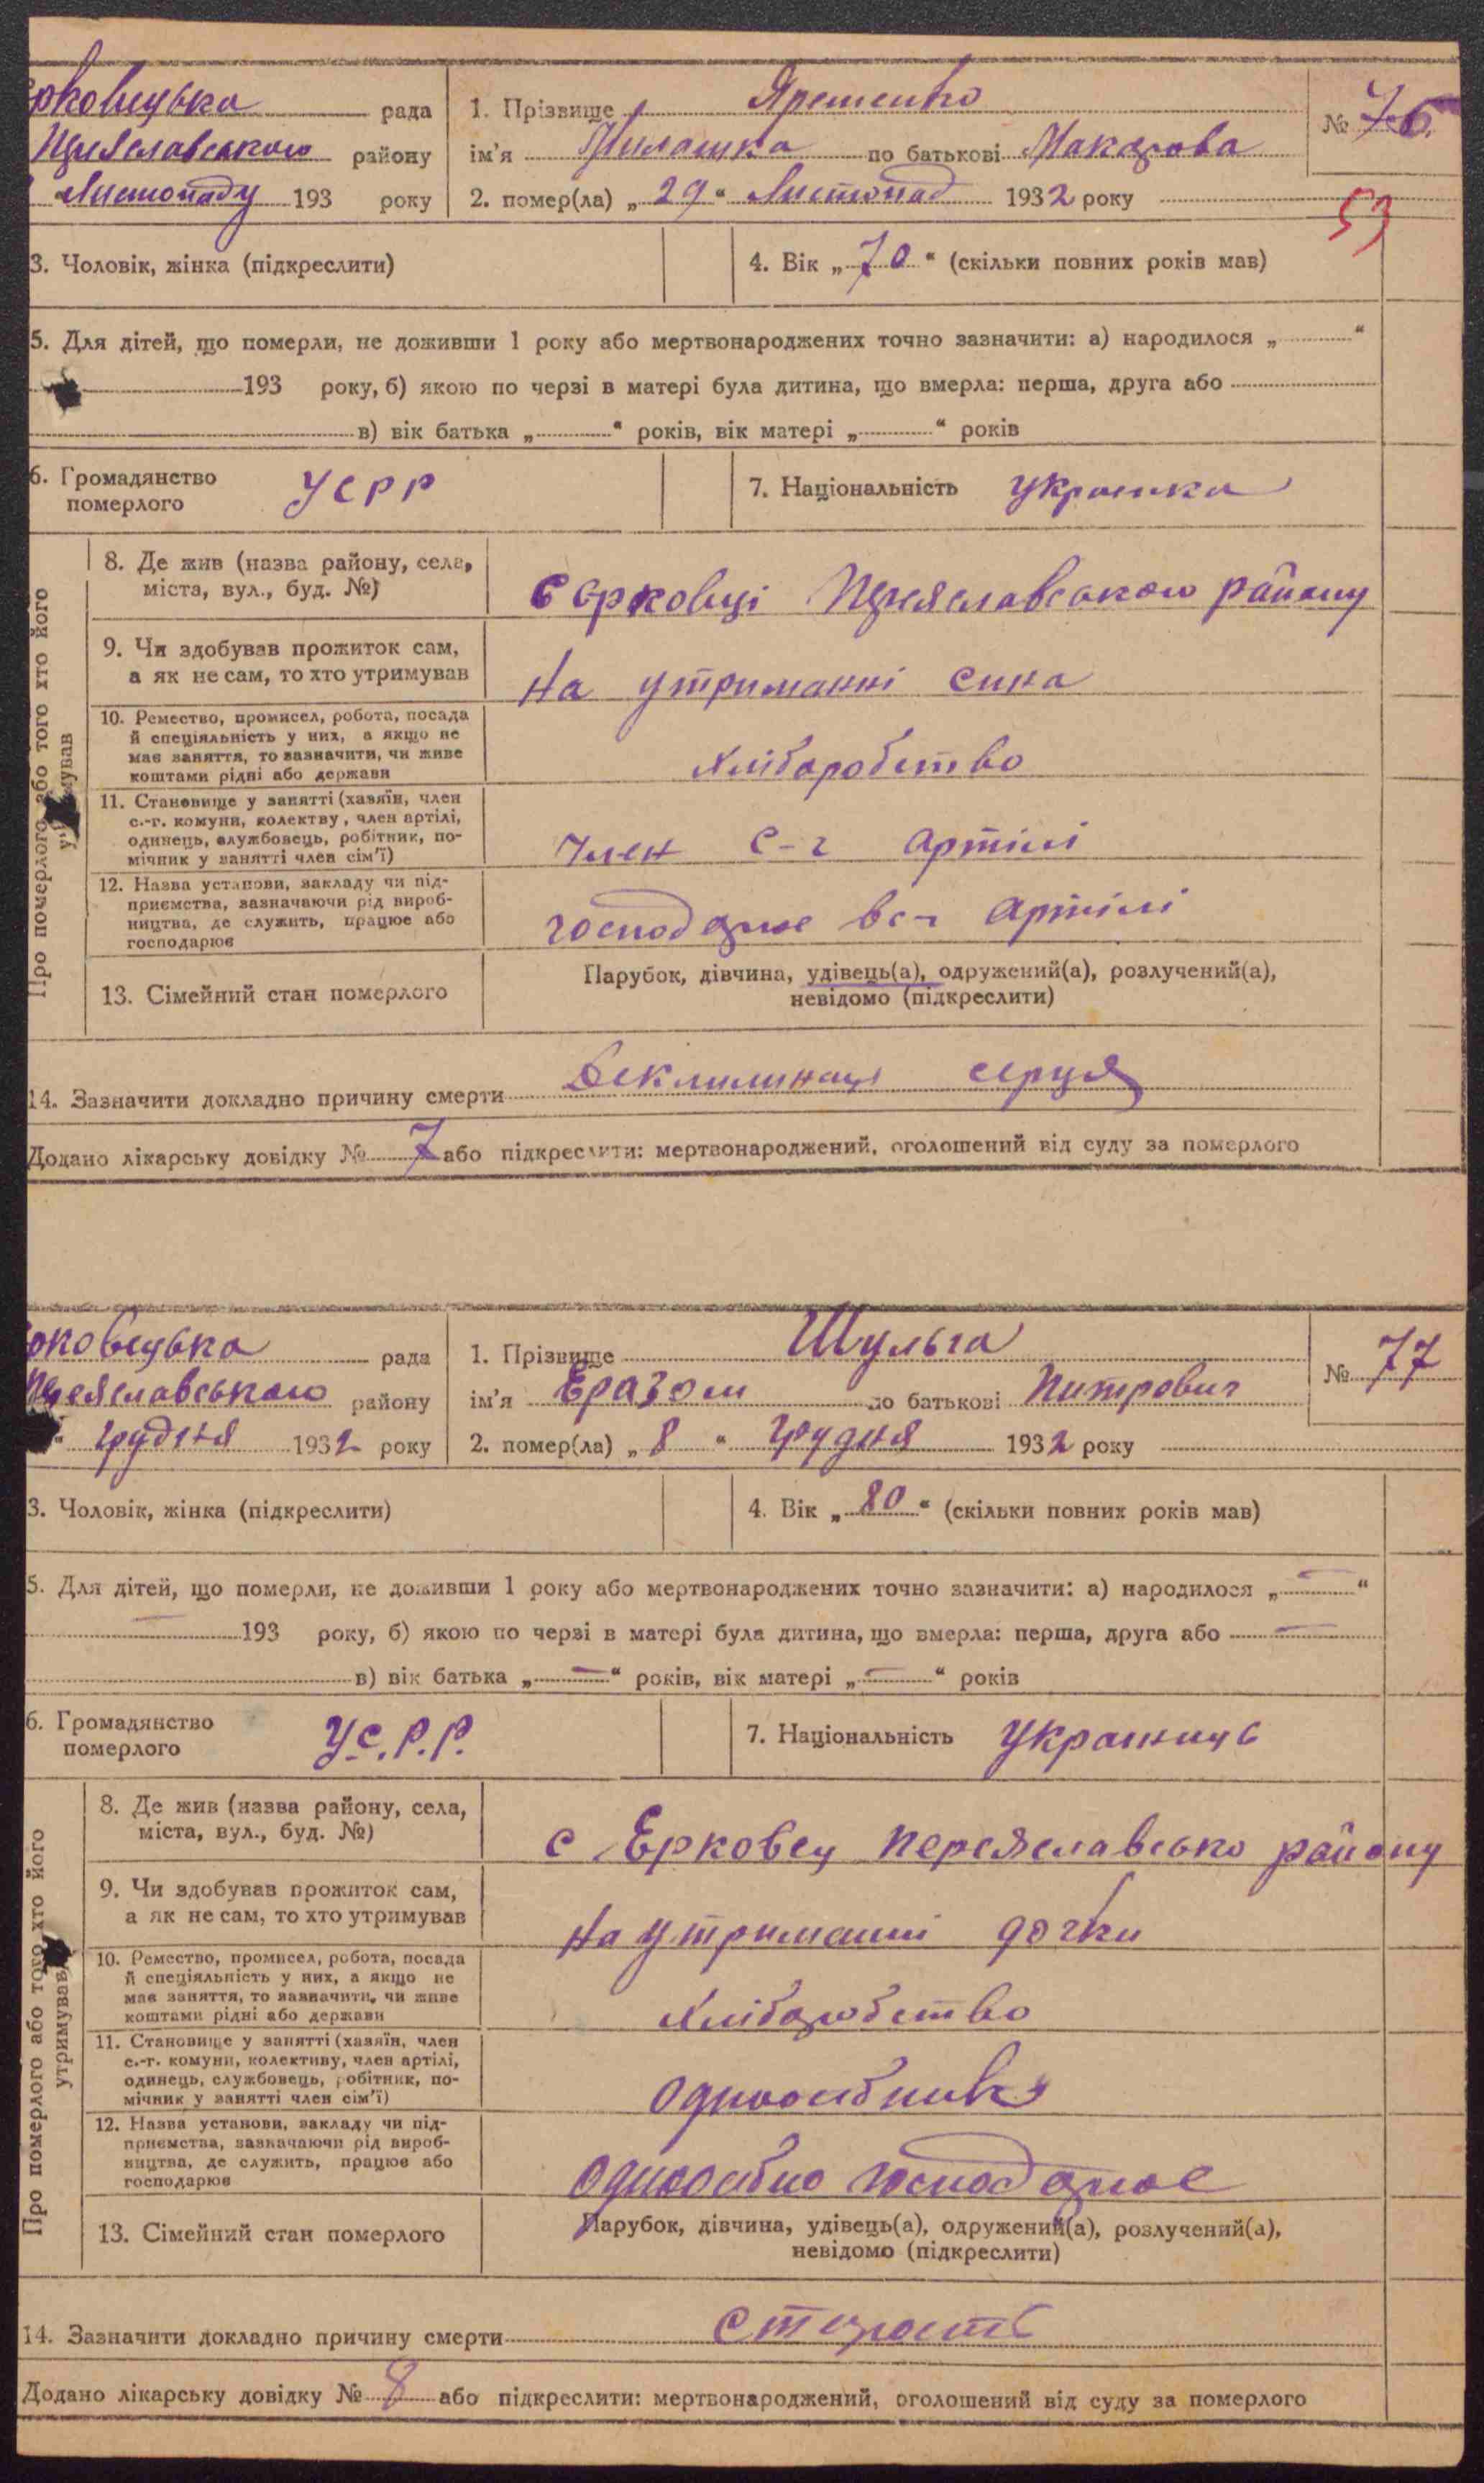 рковецька рада 1. Прізвище Яременко № 76
Переяславського району ім'я Милашка по батькові Макарова
Листопаду 193 року 2. помер(ла) „ 29 “ Листопад 1932 року
53
3. Чоловік, жінка (підкреслити) 4. Вік „ 70 “ (скільки повних років мав)
5. Для дітей, що померли, не доживши 1 року або мертвонароджених точно зазначити: а) народилося „ “
193 року, б) якою по черзі в матері була дитина, що вмерла: перша, друга або
в) вік батька „ “ років, вік матері „ “ років
6. Громадянство померлого УСРР 7. Національність Українка
Про померлого або того хто його утримував
8. Де жив (назва району, села, міста, вул., буд. №) с Єрковці Переяславського району
9. Чи здобував прожиток сам, а як не сам, то хто утримував На утриманні сина
10. Ремество, промисел, робота, посада й спеціяльність у них, а якщо не має заняття, то зазначити, чи живе коштами рідні або держави Хліборобство
11. Становище у занятті (хазяїн, член с.-г. комуни, колектву, член артілі, одинець, службовець, робітник, помічник у занятті член сім'ї) Член с-г артілі
12. Назва установи, закладу чи підприємства, зазначаючи рід виробництва, де служить, працює або господарює господарює в с-г артілі
13. Сімейний стан померлого Парубок, дівчина, удівець(а), одружений(а), розлучений(а), невідомо (підкреслити)
14. Зазначити докладно причину смерти серця
Додано лікарську довідку № 7 або підкреслити: мертвонароджений, оголошений від суду за померлого
рковецька рада 1. Прізвище Шульга № 77
Переяславського району ім'я Еразом по батькові Питрович
“ грудня 1932 року 2. помер(ла) „ 8 “ грудня 1932 року
3. Чоловік, жінка (підкреслити) 4. Вік „ 80 “ (скільки повних років мав)
5. Для дітей, що померли, не доживши 1 року або мертвонароджених точно зазначити: а) народилося „ — “
— 193 року, б) якою по черзі в матері була дитина, що вмерла: перша, друга або —
в) вік батька „ — “ років, вік матері „ — “ років
6. Громадянство померлого У.С.Р.Р. 7. Національність Українець
Про померлого або того хто його утримував
8. Де жив (назва району, села, міста, вул., буд. №) с Ерковец Переяславсько району
9. Чи здобував прожиток сам, а як не сам, то хто утримував На утриманні дочки
10. Ремество, промисел, робота, посада й спеціяльність у них, а якщо не має заняття, то зазначити, чи живе коштами рідні або держави Хліборобство
11. Становище у занятті (хазяїн, член с.-г. комуни, колективу, член артілі, одинець, службовець, робітник, помічник у занятті член сім'ї) одноосібник
12. Назва установи, закладу чи підприємства, зазначаючи рід виробництва, де служить, працює або господарює одноосібно господарює
13. Сімейний стан померлого Парубок, дівчина, удівець(а), одружений(а), розлучений(а), невідомо (підкреслити)
14. Зазначити докладно причину смерти Старость
Додано лікарську довідку № 8 або підкреслити: мертвонароджений, оголошений від суду за померлого